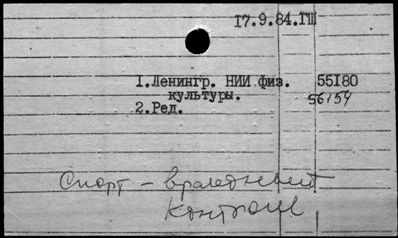 17.9.84.ТШ
1.Ленингр. НИИ физ. 55180
культуры. 56154
2.Ред.
Спорт – врачебный
Контроль